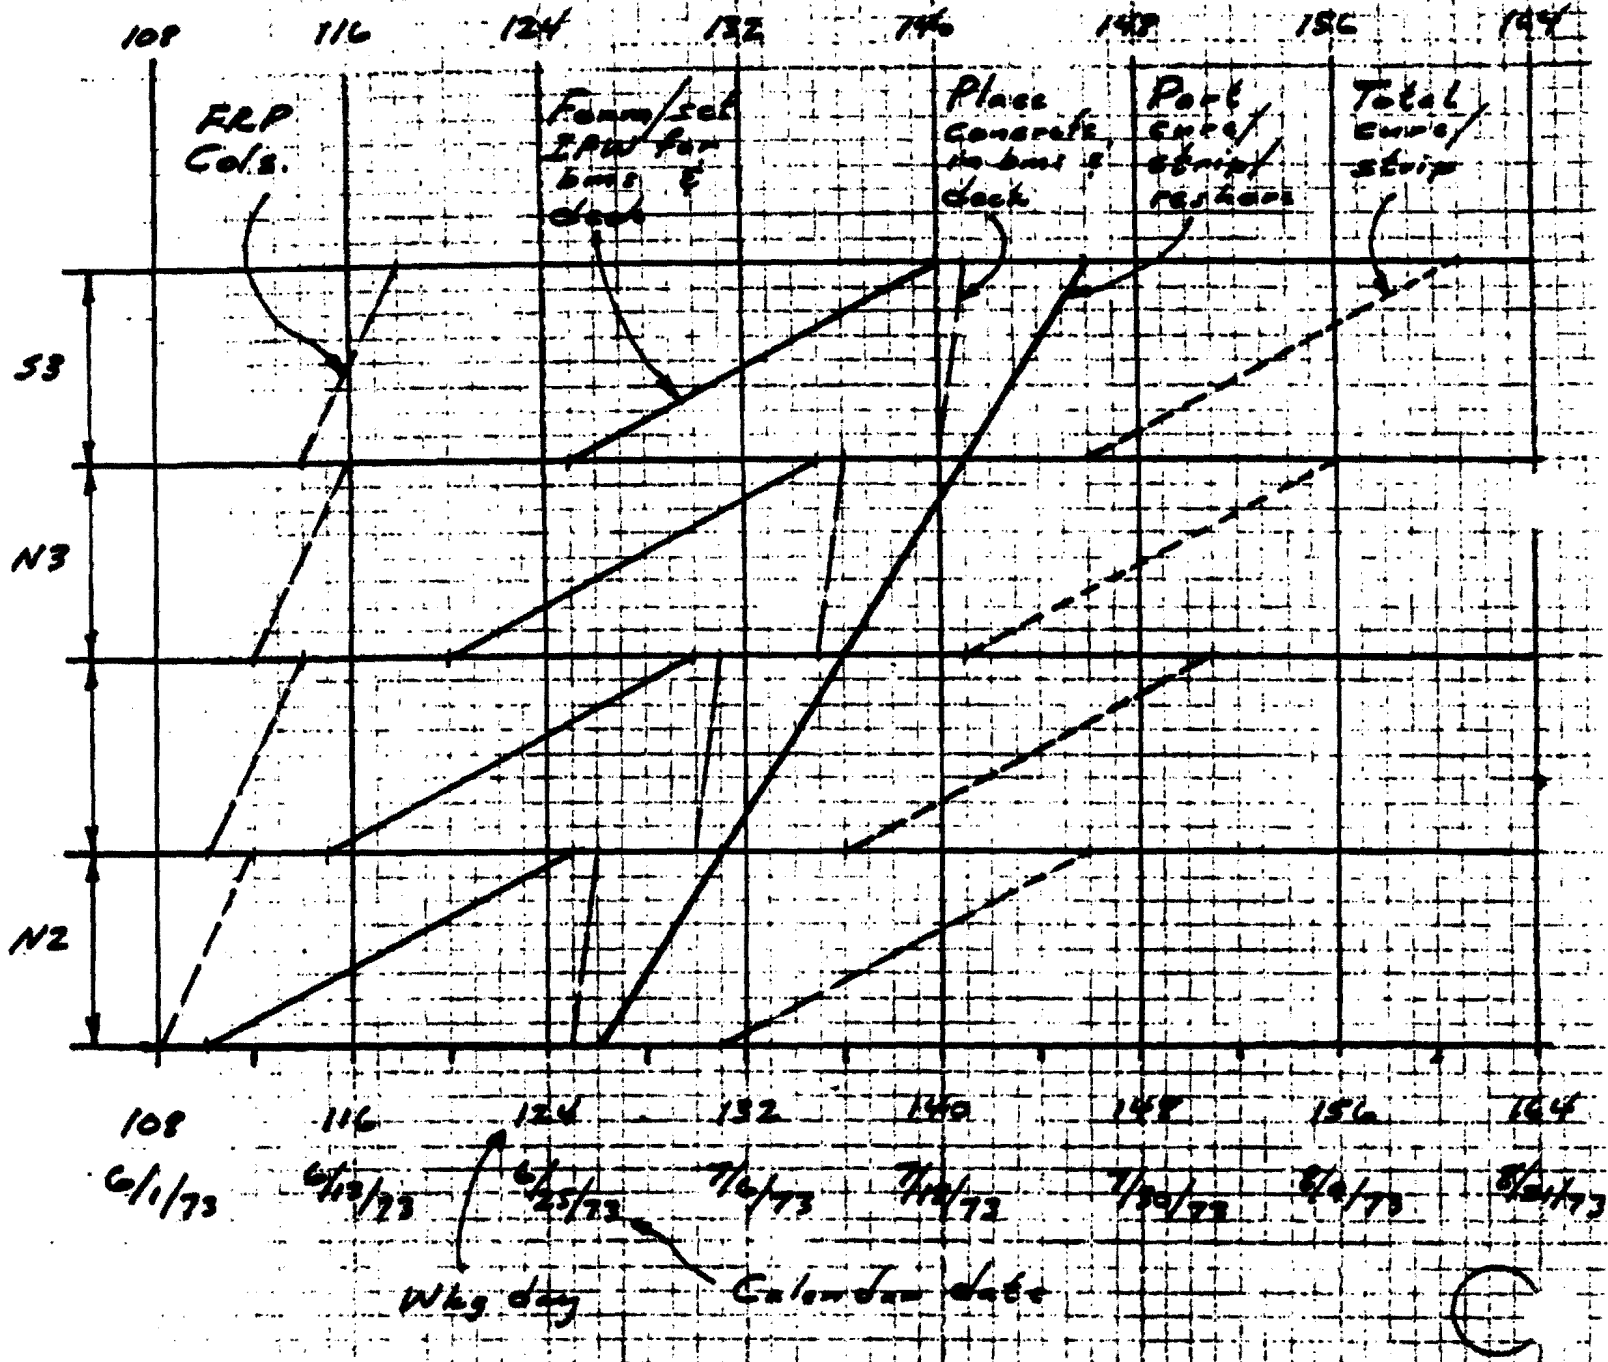 108 116 124 132 140 148 156 164
FRP
Cols.
Form/set
IPW for
bms &
deck
Place
concrete
in bms &
deck
Part
cure/
strip/
reshore
Total
cure/
strip
S3
N3
N2
108 116 124 132 140 148 156 164
6/1/73 6/13/73 6/25/73 7/6/73 7/18/73 7/30/73 8/9/73 8/21/73
Wkg day
Calendar date